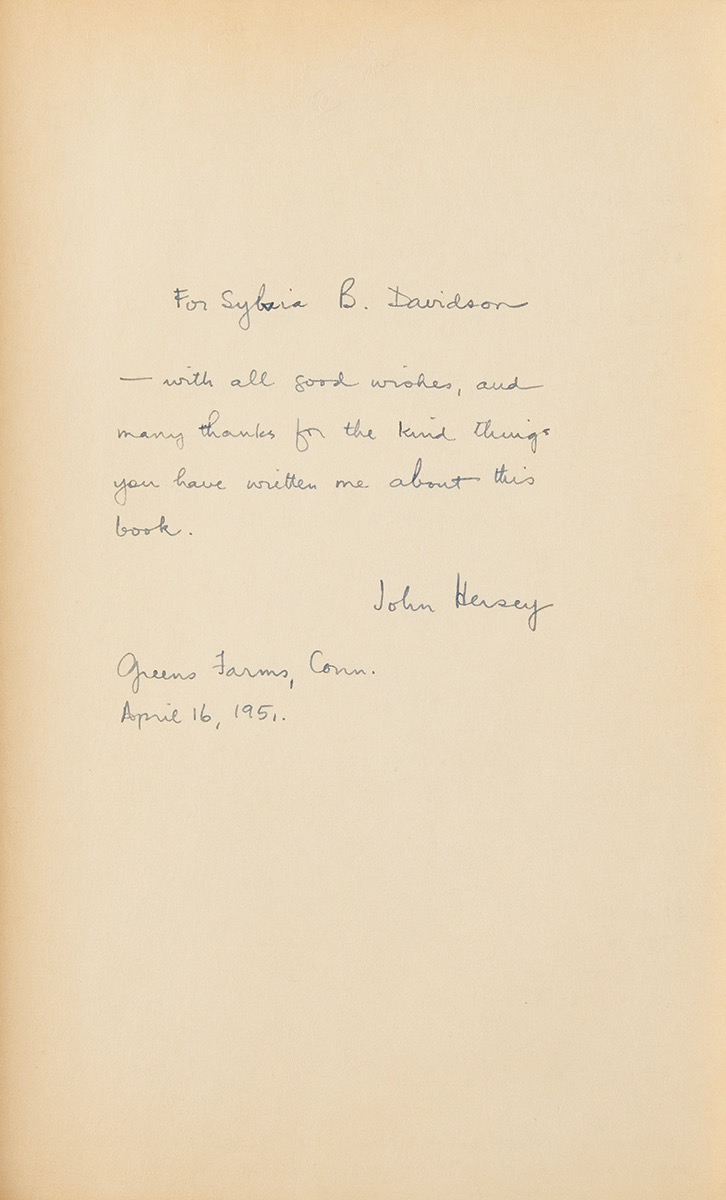 For Sylvia B. Davidson
— with all good wishes, and
many thanks for the kind things
you have written me about this
book.
John Hersey
Greens Farms, Conn.
April 16, 1951.